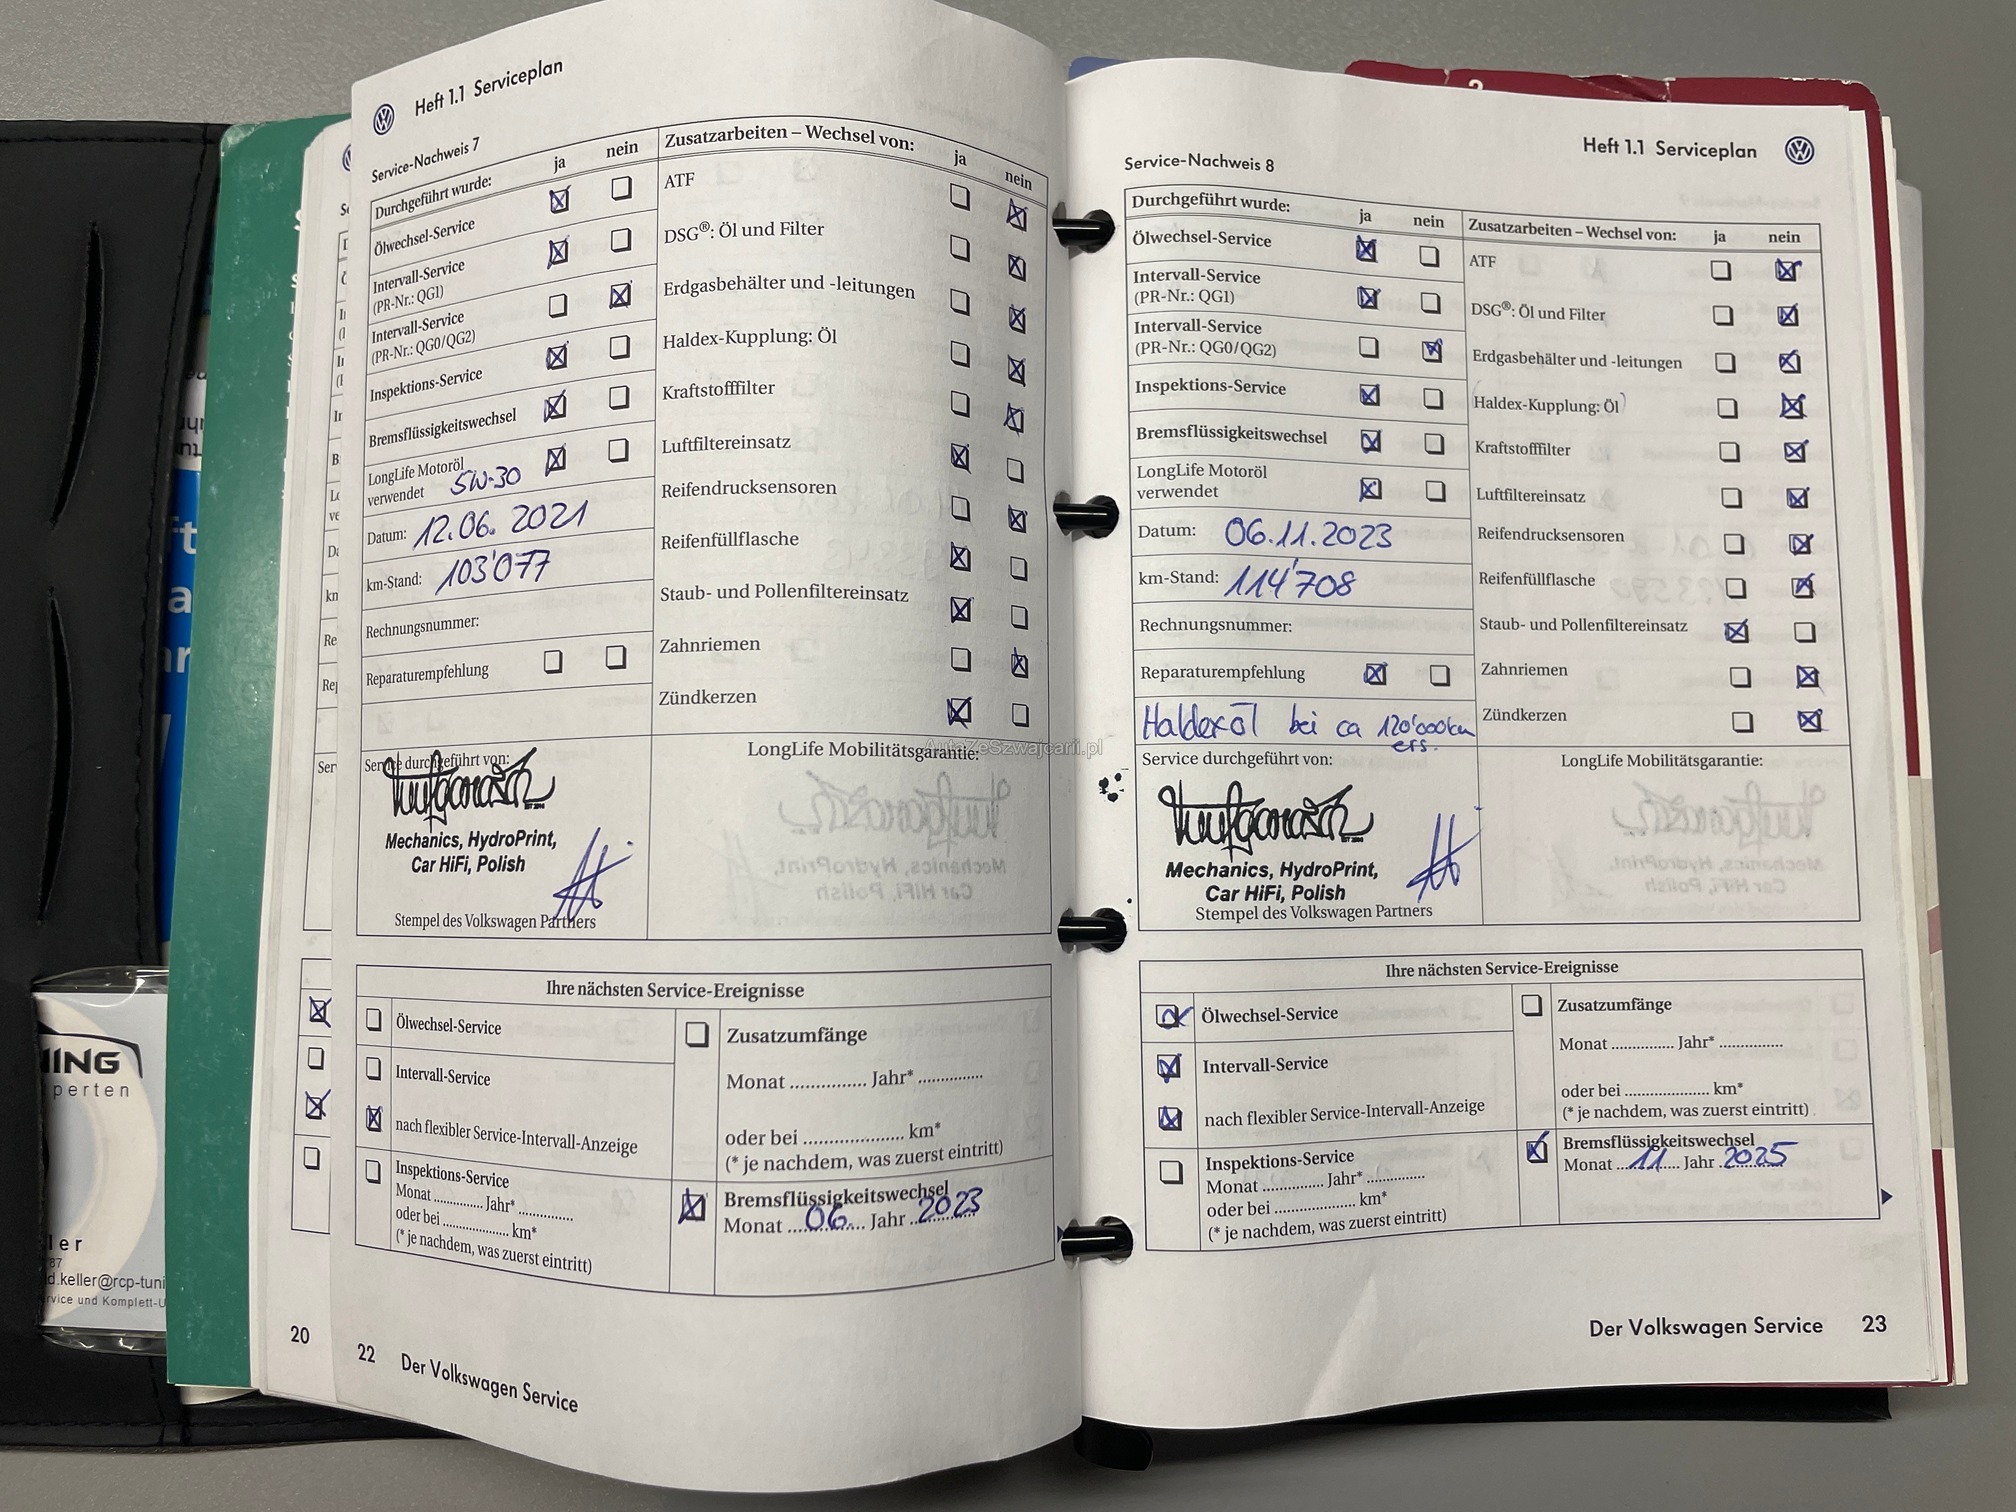 Heft 1.1 Serviceplan
Service-Nachweis 7
Durchgeführt wurde: ja nein
Ölwechsel-Service
Intervall-Service
(PR-Nr.: QG1)
Intervall-Service
(PR-Nr.: QG0/QG2)
Inspektions-Service
Bremsflüssigkeitswechsel
LongLife Motoröl
verwendet 5W-30
Datum: 12.06.2021
km-Stand: 103'077
Rechnungsnummer:
Reparaturempfehlung
Zusatzarbeiten – Wechsel von: ja nein
ATF
DSG®: Öl und Filter
Erdgasbehälter und -leitungen
Haldex-Kupplung: Öl
Kraftstofffilter
Luftfiltereinsatz
Reifendrucksensoren
Reifenfüllflasche
Staub- und Pollenfiltereinsatz
Zahnriemen
Zündkerzen
Service durchgeführt von:
Mechanics, HydroPrint,
Car HiFi, Polish
Stempel des Volkswagen Partners
LongLife Mobilitätsgarantie:
Ihre nächsten Service-Ereignisse
Ölwechsel-Service
Intervall-Service
nach flexibler Service-Intervall-Anzeige
Inspektions-Service
Monat ............ Jahr* ...............
oder bei ..................... km*
(* je nachdem, was zuerst eintritt)
Zusatzumfänge
Monat ............... Jahr* .............
oder bei .................... km*
(* je nachdem, was zuerst eintritt)
Bremsflüssigkeitswechsel
Monat 06 Jahr 2023
20
22 Der Volkswagen Service
AutaZeSzwajcarii.pl
Heft 1.1 Serviceplan
Service-Nachweis 8
Durchgeführt wurde: ja nein
Ölwechsel-Service
Intervall-Service
(PR-Nr.: QG1)
Intervall-Service
(PR-Nr.: QG0/QG2)
Inspektions-Service
Bremsflüssigkeitswechsel
LongLife Motoröl
verwendet
Datum: 06.11.2023
km-Stand: 114'708
Rechnungsnummer:
Reparaturempfehlung
Haldexöl bei ca 120'000km
ers.
Zusatzarbeiten – Wechsel von: ja nein
ATF
DSG®: Öl und Filter
Erdgasbehälter und -leitungen
Haldex-Kupplung: Öl
Kraftstofffilter
Luftfiltereinsatz
Reifendrucksensoren
Reifenfüllflasche
Staub- und Pollenfiltereinsatz
Zahnriemen
Zündkerzen
Service durchgeführt von:
Mechanics, HydroPrint,
Car HiFi, Polish
Stempel des Volkswagen Partners
LongLife Mobilitätsgarantie:
Ihre nächsten Service-Ereignisse
Ölwechsel-Service
Intervall-Service
nach flexibler Service-Intervall-Anzeige
Inspektions-Service
Monat ............... Jahr* ..............
oder bei ..................... km*
(* je nachdem, was zuerst eintritt)
Zusatzumfänge
Monat ............... Jahr* ...............
oder bei ..................... km*
(* je nachdem, was zuerst eintritt)
Bremsflüssigkeitswechsel
Monat 11 Jahr 2025
Der Volkswagen Service 23
d.keller@rcp-tuni